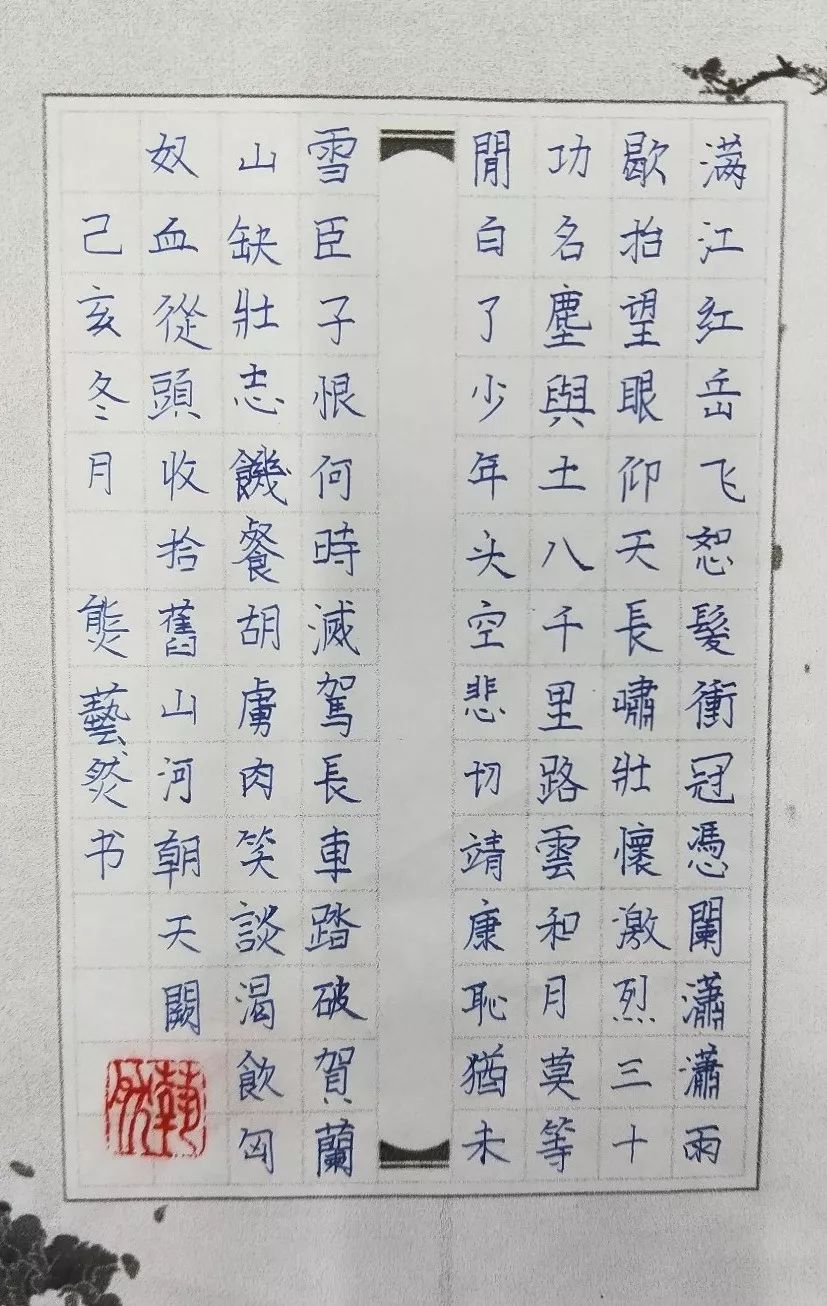 满江红岳飞恕髮衝冠憑闌瀟瀟雨
歇抬望眼仰天長嘯壯懷激烈三十
功名塵與土八千里路雲和月莫等
閒白了少年头空悲切靖康恥猶未
雪臣子恨何時滅駕長車踏破賀蘭
山缺壯志饑餐胡虜肉笑談渴飲匈
奴血從頭收拾舊山河朝天闕
己亥冬月 熊藝然书